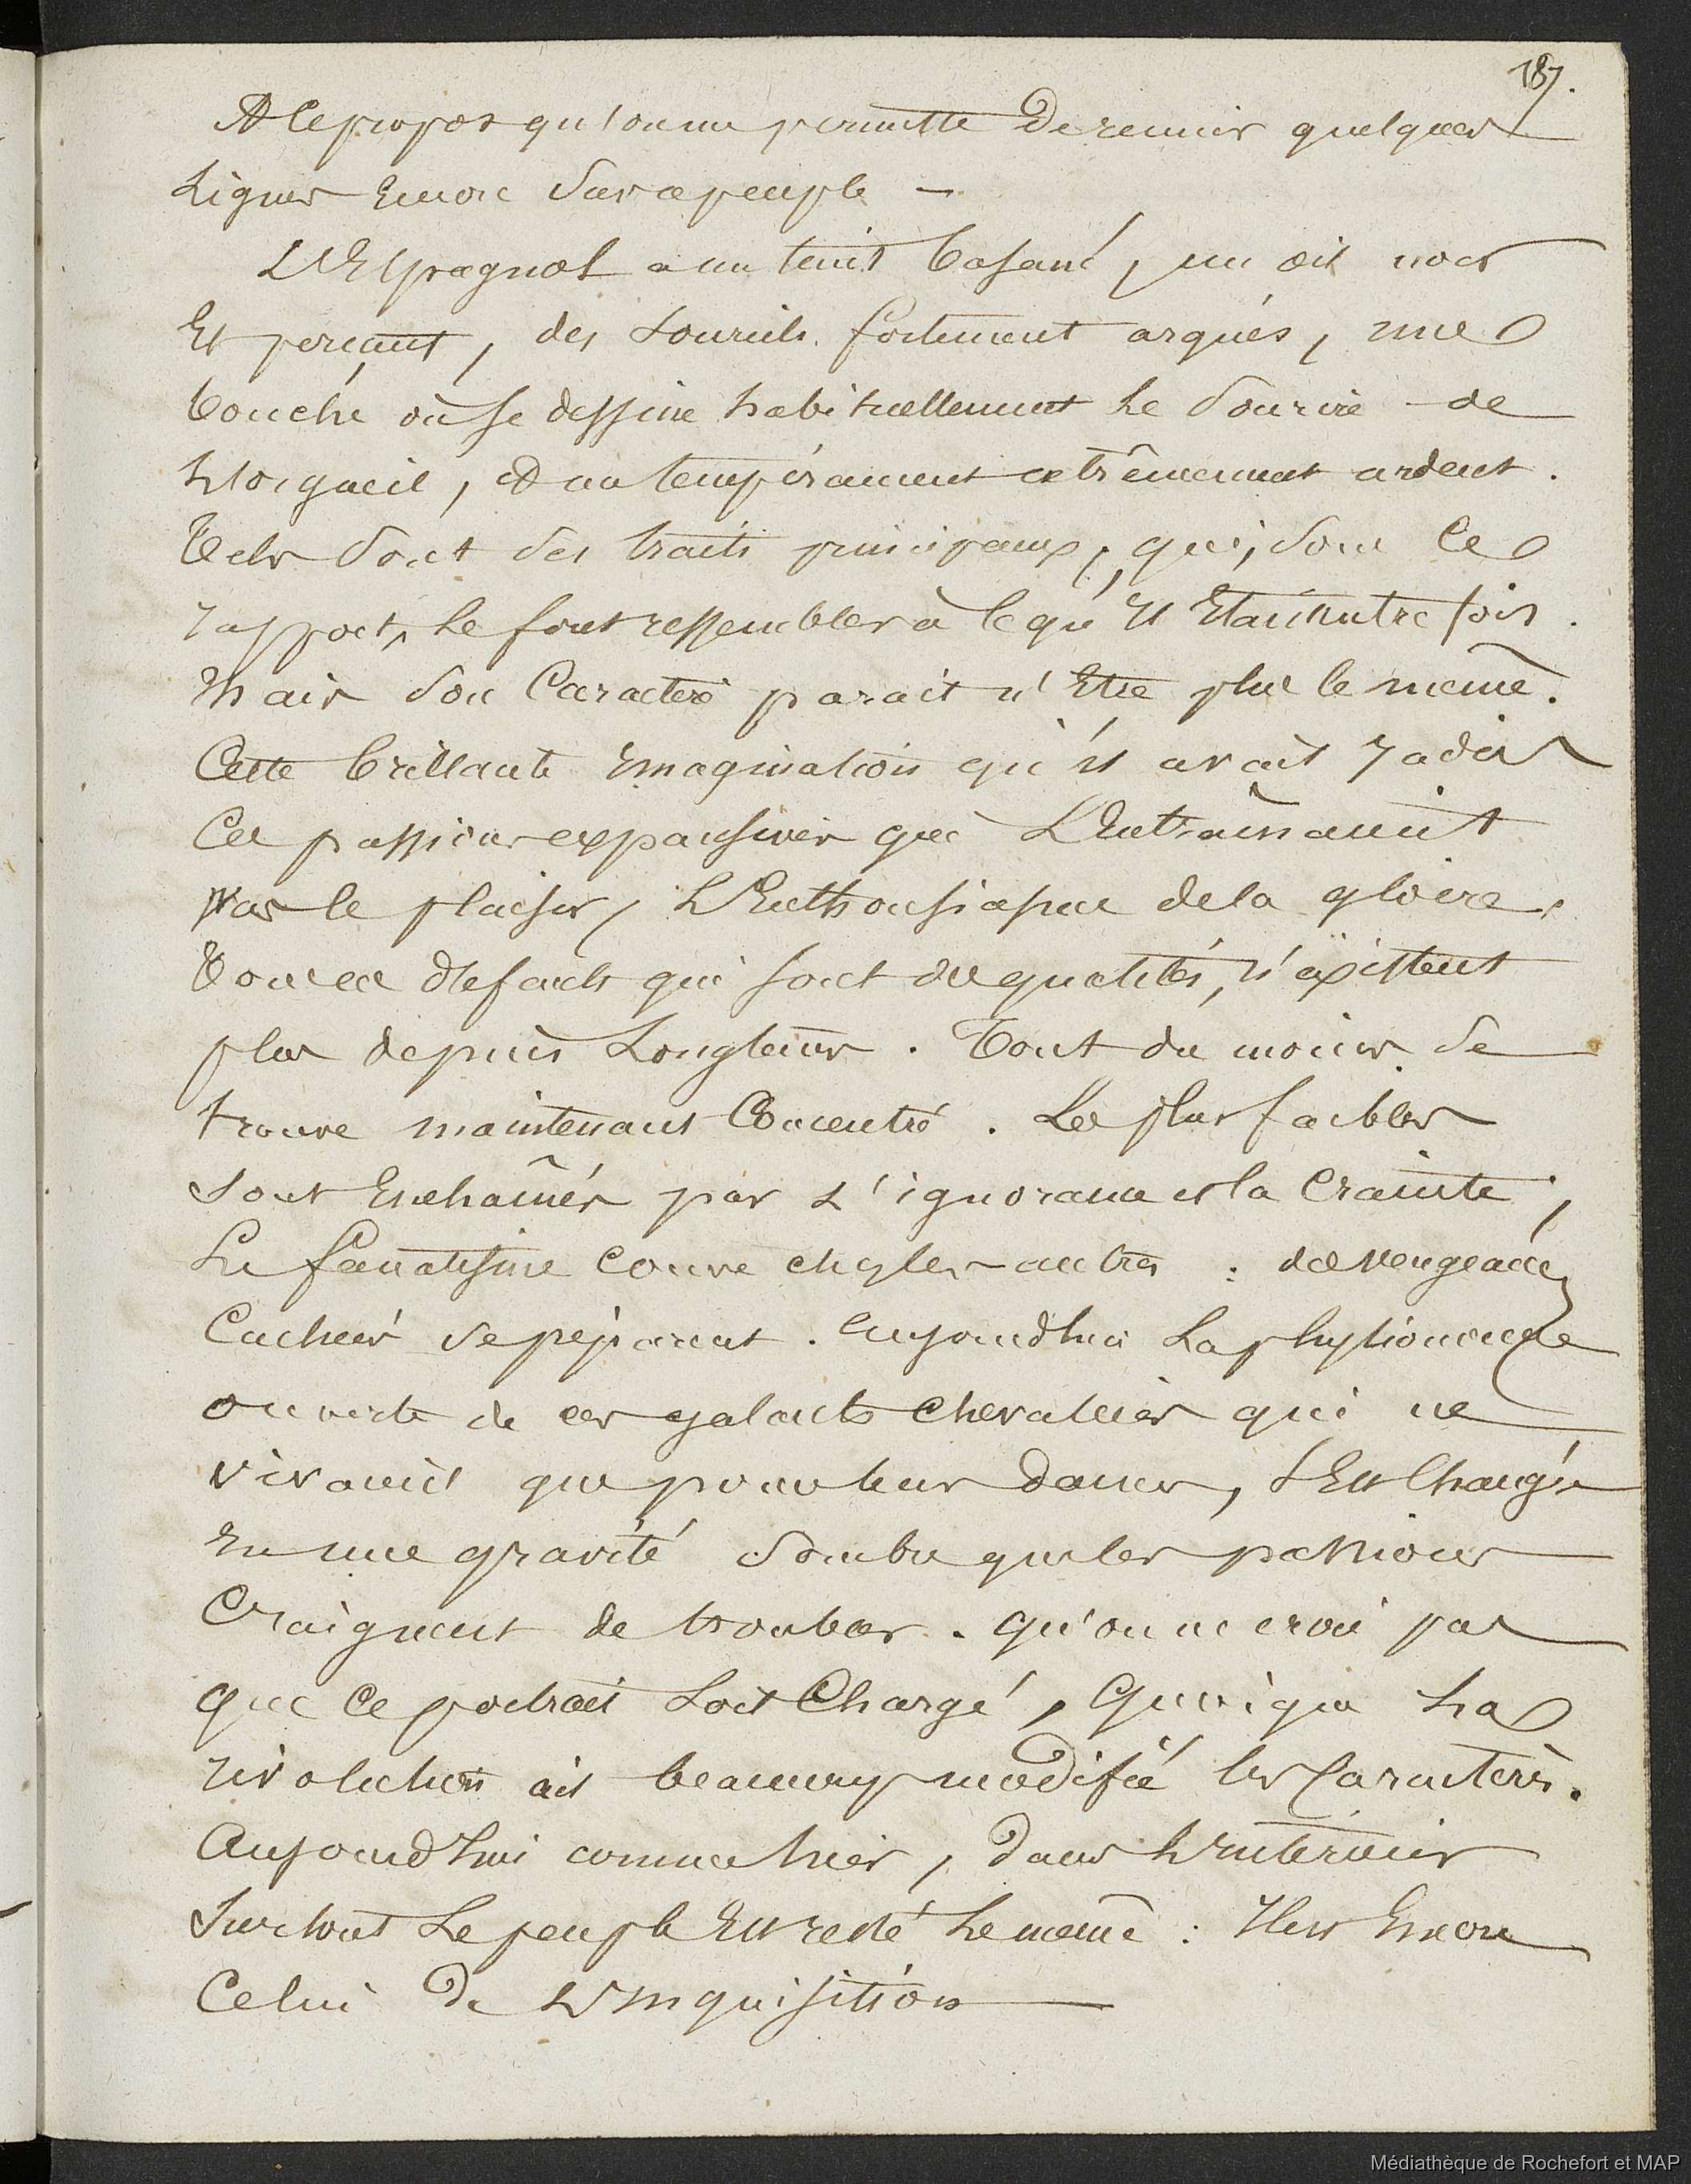 187.
A ce propos qu'on me permette de reunir quelques
Lignes Encore Sur ce peuple —
L'Espagnol a un teint basané, un œil noir
Et perçant, des Sourcils fortement arqués, une
bouche où se dessine habituellement Le Sourire de
L'orgueil, Et un tempérament extrêmement ardent.
Tels Sont Ses traits principaux, qui, Sous Ce
rapport, Le font ressembler à Ce qu'Il Etait autrefois.
Mais Son Caractère parait n'Etre plus le même.
Cette brillante Imagination qu'il avait Jadis
Ces passions expansives que L'Entraînaient
vers le plaisir, L'Enthousiasme de la gloire,
Tous ces défauts qui sont des qualités, n'existent
plus depuis Longtems. Tout du moins Se
trouve maintenant Concentré. Les plus faibles
Sont Enchaînés par L'ignorance et la Crainte,
Le fanatisme Couve chez les autres : des vengeances
Cachées Se préparent. aujourd'hui La physionomie
ouverte de ces galants chevaliers qui ne
vivaient que pour leurs dames, S'Est Changée
En une gravité Sombre que les passions
Craignent de troubler. qu'on ne croie pas
que Ce portrait Soit Chargé, Quoique La
révolution ait beaucoup modifié les Caractères.
Aujourd'hui comme hier, dans L'Intérieur
Surtout Le peuple Est resté Le même : Il est Encore
Celui de L'Inquisition —
Médiathèque de Rochefort et MAP